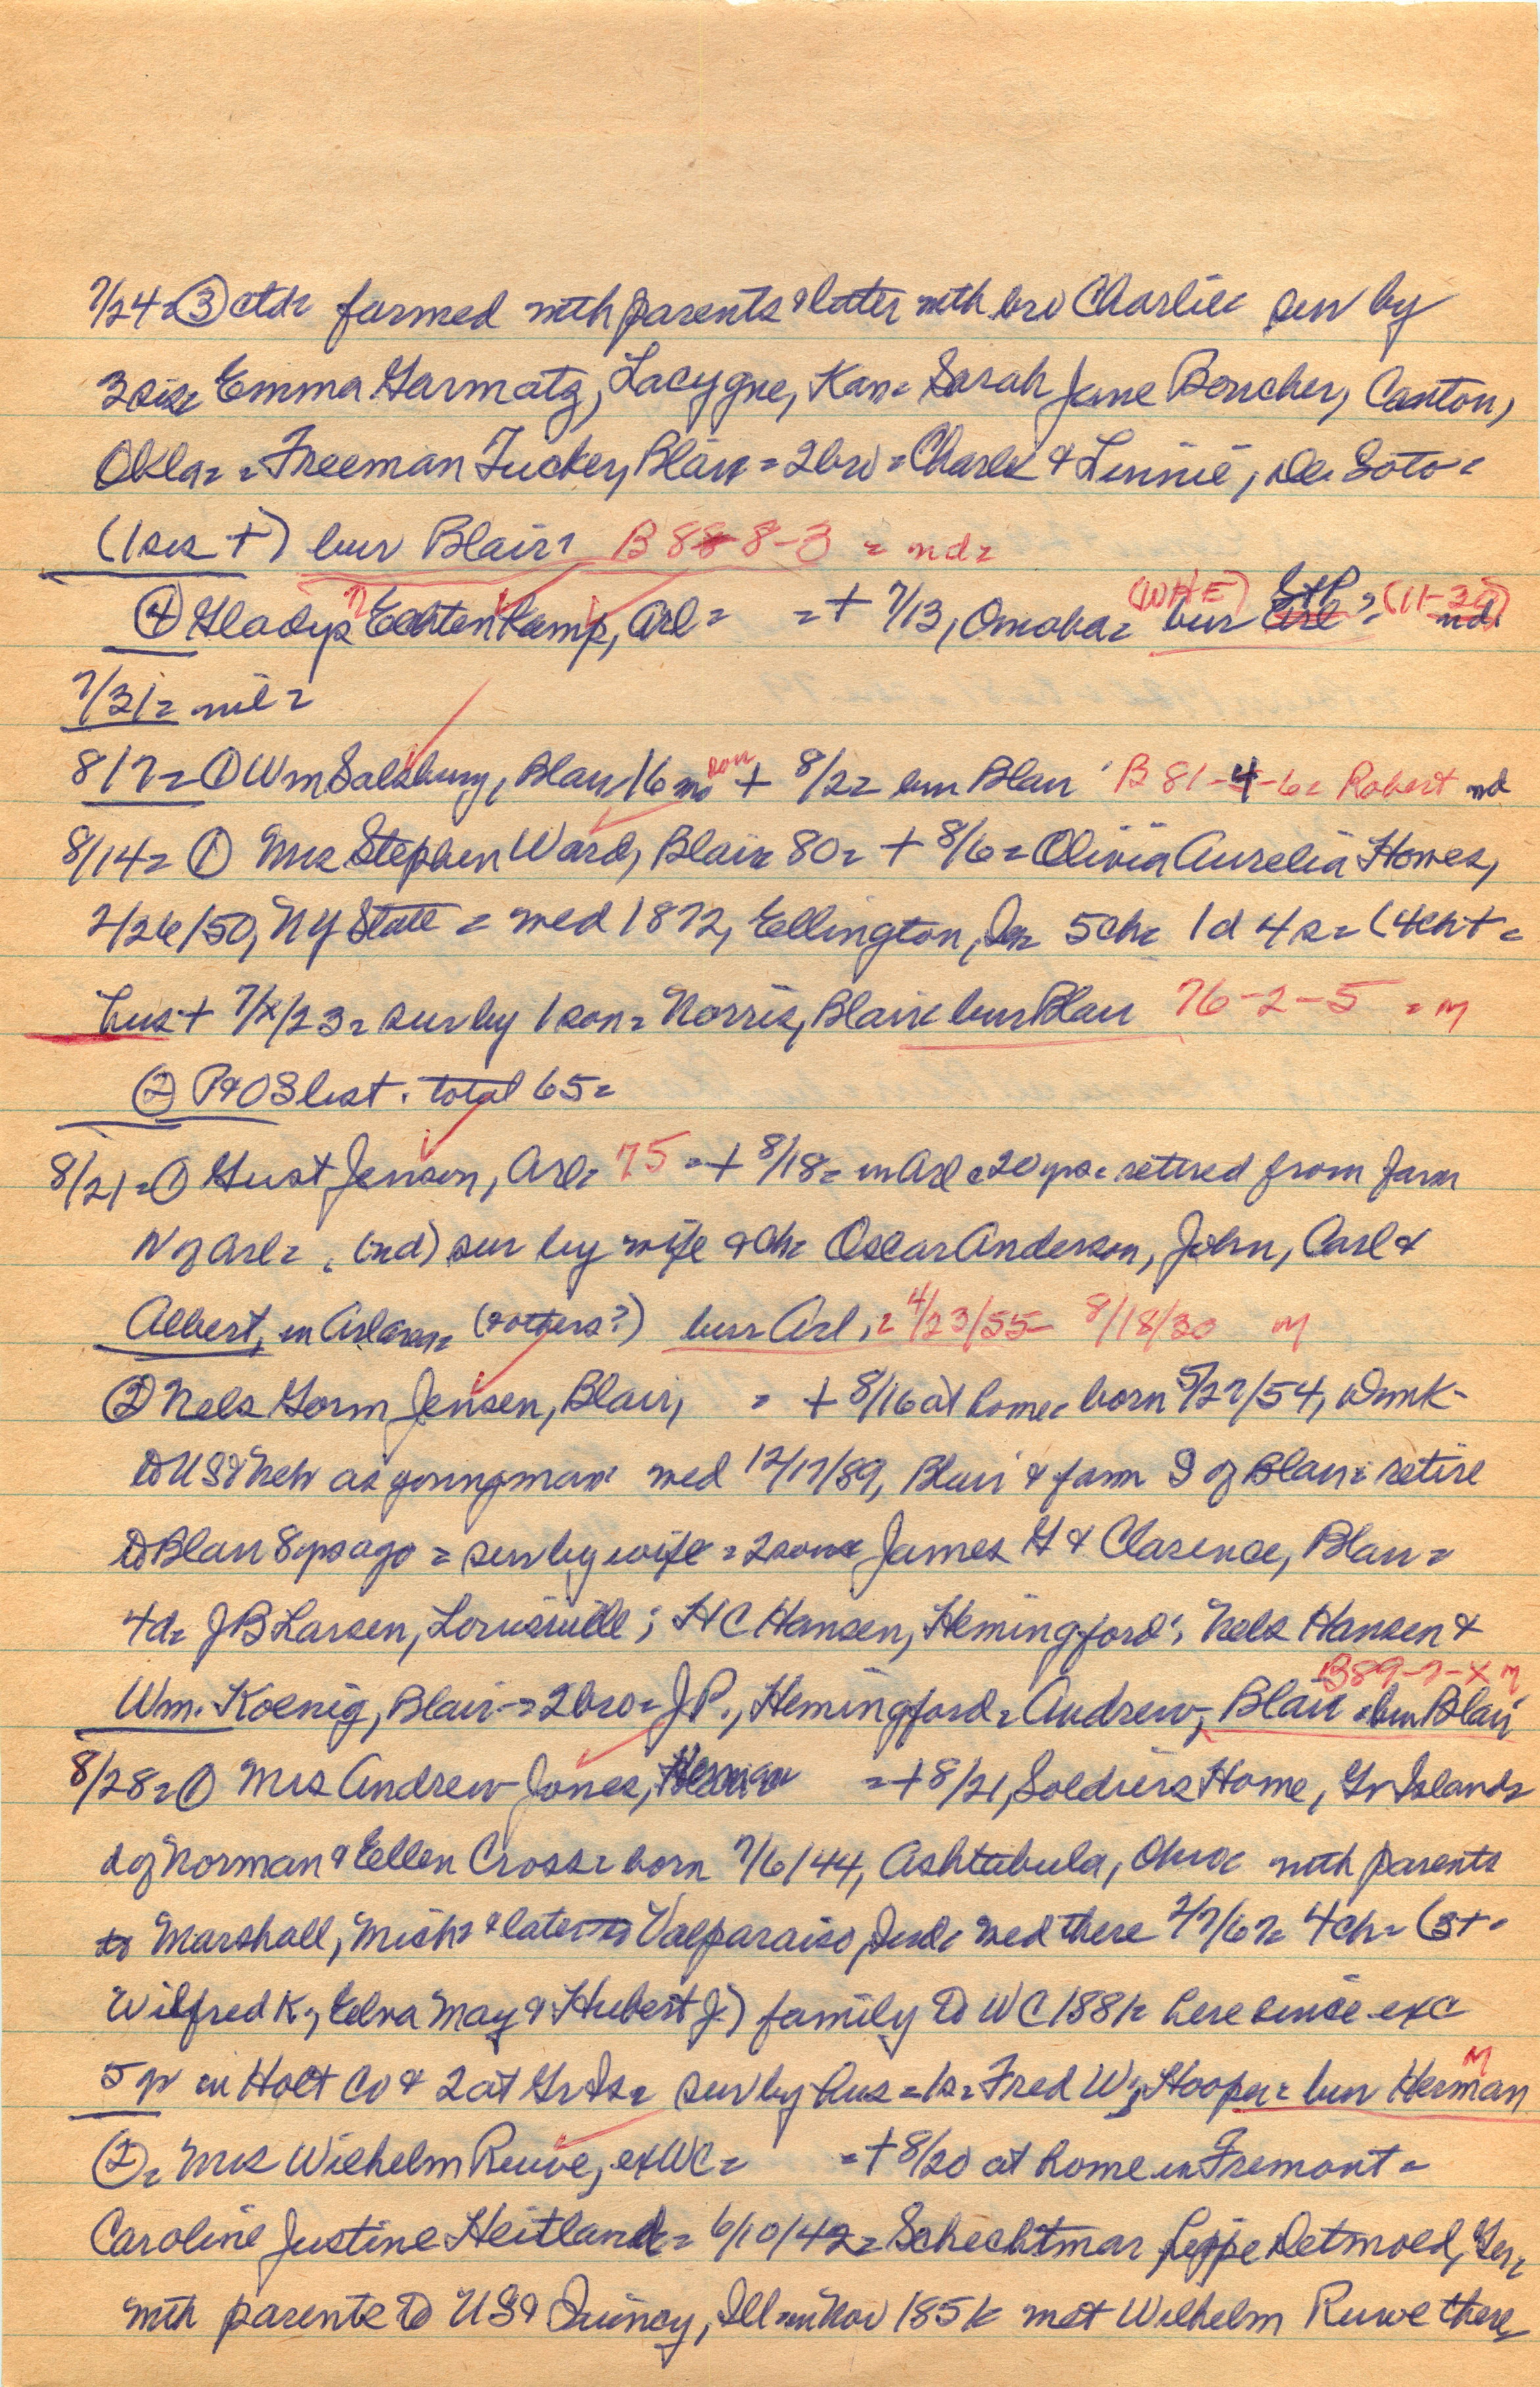 7/24 = ③ ctd = farmed with parents & later with bro Charlie = sur by
3 sis = Emma Garmatz, Lacygne, Kan = Sarah Jane Boucher, Canton,
Okla = = Freeman Tucker, Blair = 2 bro = Charles & Linnie, De Soto =
(1 sis +) bur Blair = B 88-8-3 = nd =
(WHE) (11-30)
④ Gladys Echtenkamp, Arl = = + 7/13, Omaha = bur Arl St P = nd
7/31 = nil =
8/7 = ① Wm Salsbury, Blair 16 mo son + 8/2 = bur Blair B 81-4-6 = Robert nd
8/14 = ① Mrs Stephen Ward, Blair 80 = + 8/6 = Olivia Aurelia Howes,
2/26/50, NY State = wed 1872, Ellington, Ia = 5 ch = 1 d 4 s = (4 ch + =
hus + 7/x/23 = sur by 1 son = Norris, Blair = bur Blair 76-2-5 = m
② P & O S list . total 65 =
8/21 = ① Gust Jensen, Arl = 75 = + 8/18 = in Arl c 20 yrs = retired from farm
N of Arl = , (nd) sur by wife & ch = Oscar Anderson, John, Carl &
Albert, in Arl area = (& others?) bur Arl, = 4/23/55 - 8/18/30 m
② Nels Gorm Jensen, Blair, = + 8/16 at home = born 5/27/54, Dmk -
to US & Neb as young man wed 12/17/89, Blair & farm S of Blair = retire
to Blair 8 yrs ago = sur by wife = 2 sons = James G & Clarence, Blair =
4 d = J B Larsen, Louisville ; H C Hansen, Hemingford ; Nels Hansen &
B 89-7-X m
Wm. Koenig, Blair = 2 bro = J P., Hemingford = Andrew, Blair = bur Blair
8/28 = ① Mrs Andrew Jones, Herman = + 8/21, Soldiers Home, Gr Island =
d of Norman & Ellen Cross = born 7/6/44, Ashtabula, Ohio = with parents
to Marshall, Mich = & later to Valparaiso, Ind = wed there 2/7/67 = 4 ch = (3 + =
Wilfred K, Elva May & Hubert J) family to WC 1881 = here since exc
5 yr in Holt Co & 2 at Gr Is = sur by hus = 1 s = Fred W, Hooper = bur Herman m
② = Mrs Wilhelm Ruwe, ex WC = = + 8/20 at home in Fremont =
Caroline Justine Heitland = 6/10/42 = Schechtmar Lippe Detmold, Ger =
with parents to US & Quincy, Ill = in Nov 1851 = met Wilhelm Ruwe there,